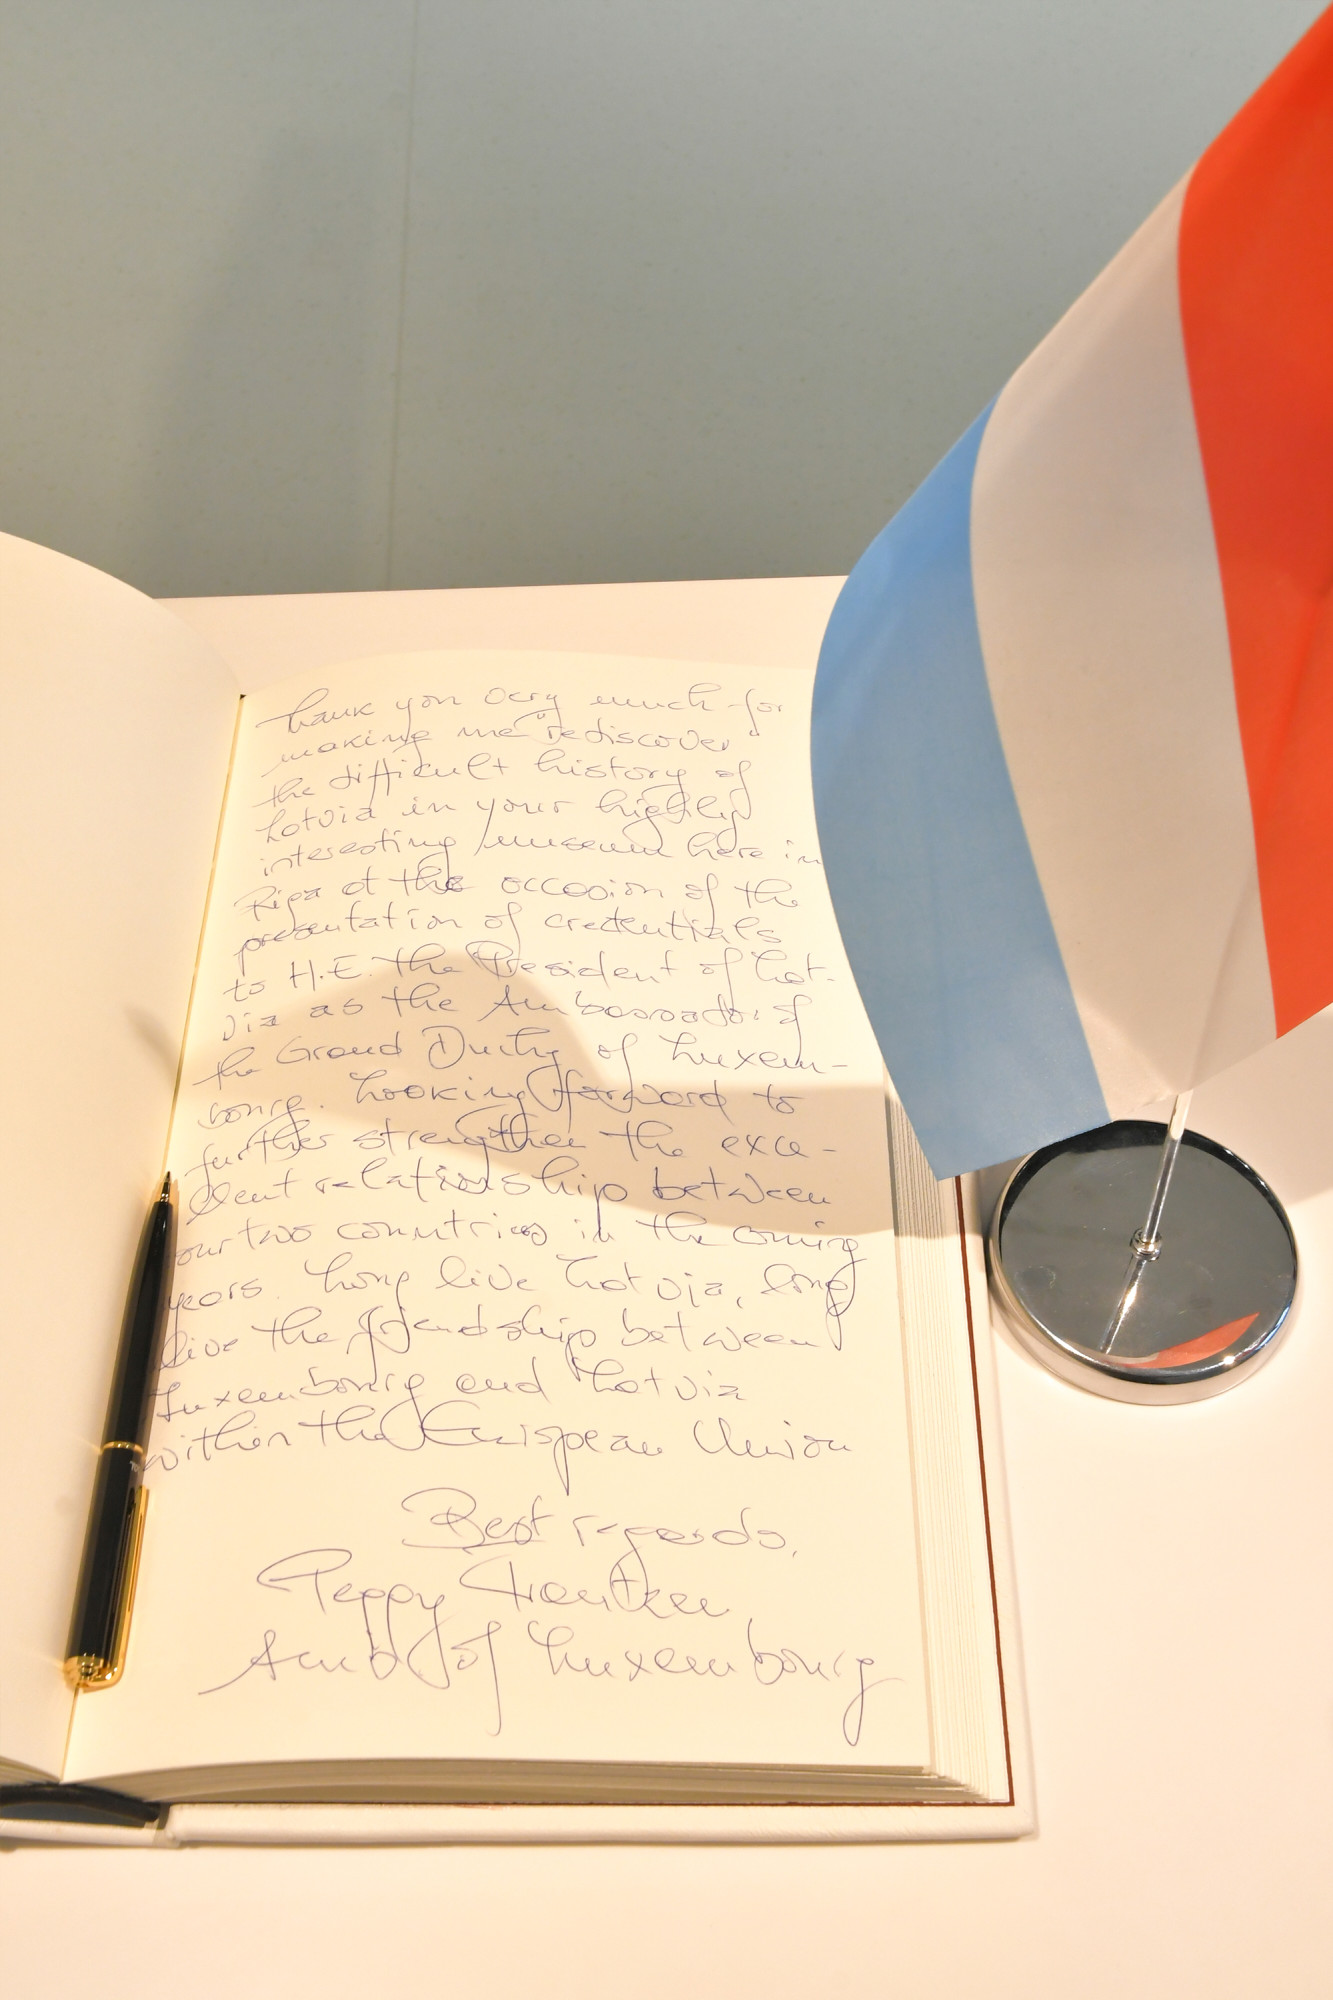 Thank you very much for
making me "rediscover"
the difficult history of
Latvia in your highly
interesting museum here in
Riga at the occasion of the
presentation of credentials
to H.E. the President of Lat-
via as the Ambassador of
the Grand Duchy of Luxem-
bourg. Looking forward to
further strengthen the exce-
llent relationship between
our two countries in the coming
years. Long live Latvia, long
live the friendship between
Luxembourg and Latvia
within the European Union
Best regards,
Peppy Frantzen,
Amb of Luxembourg